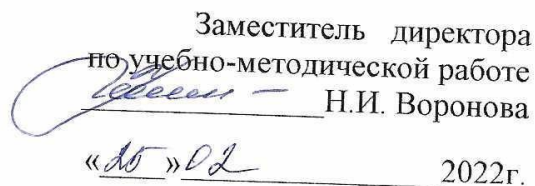 Заместитель директора
по учебно-методической работе
Н.И. Воронова
«25» 02 2022г.